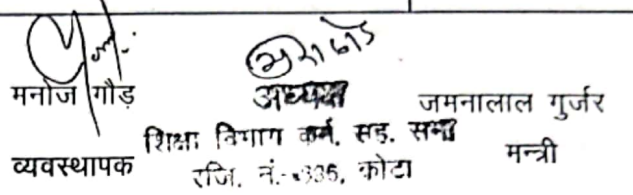 मनोज गौड़
व्यवस्थापक
अध्यक्ष
शिक्षा विभाग कर्म. सह. सभा
रजि. नं.-335, कोटा
जमनालाल गुर्जर
मन्त्री